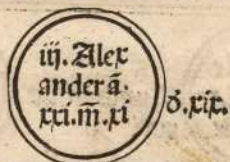 iij. Alex
ander ā.
xxi. m̄. xi
d. xix.